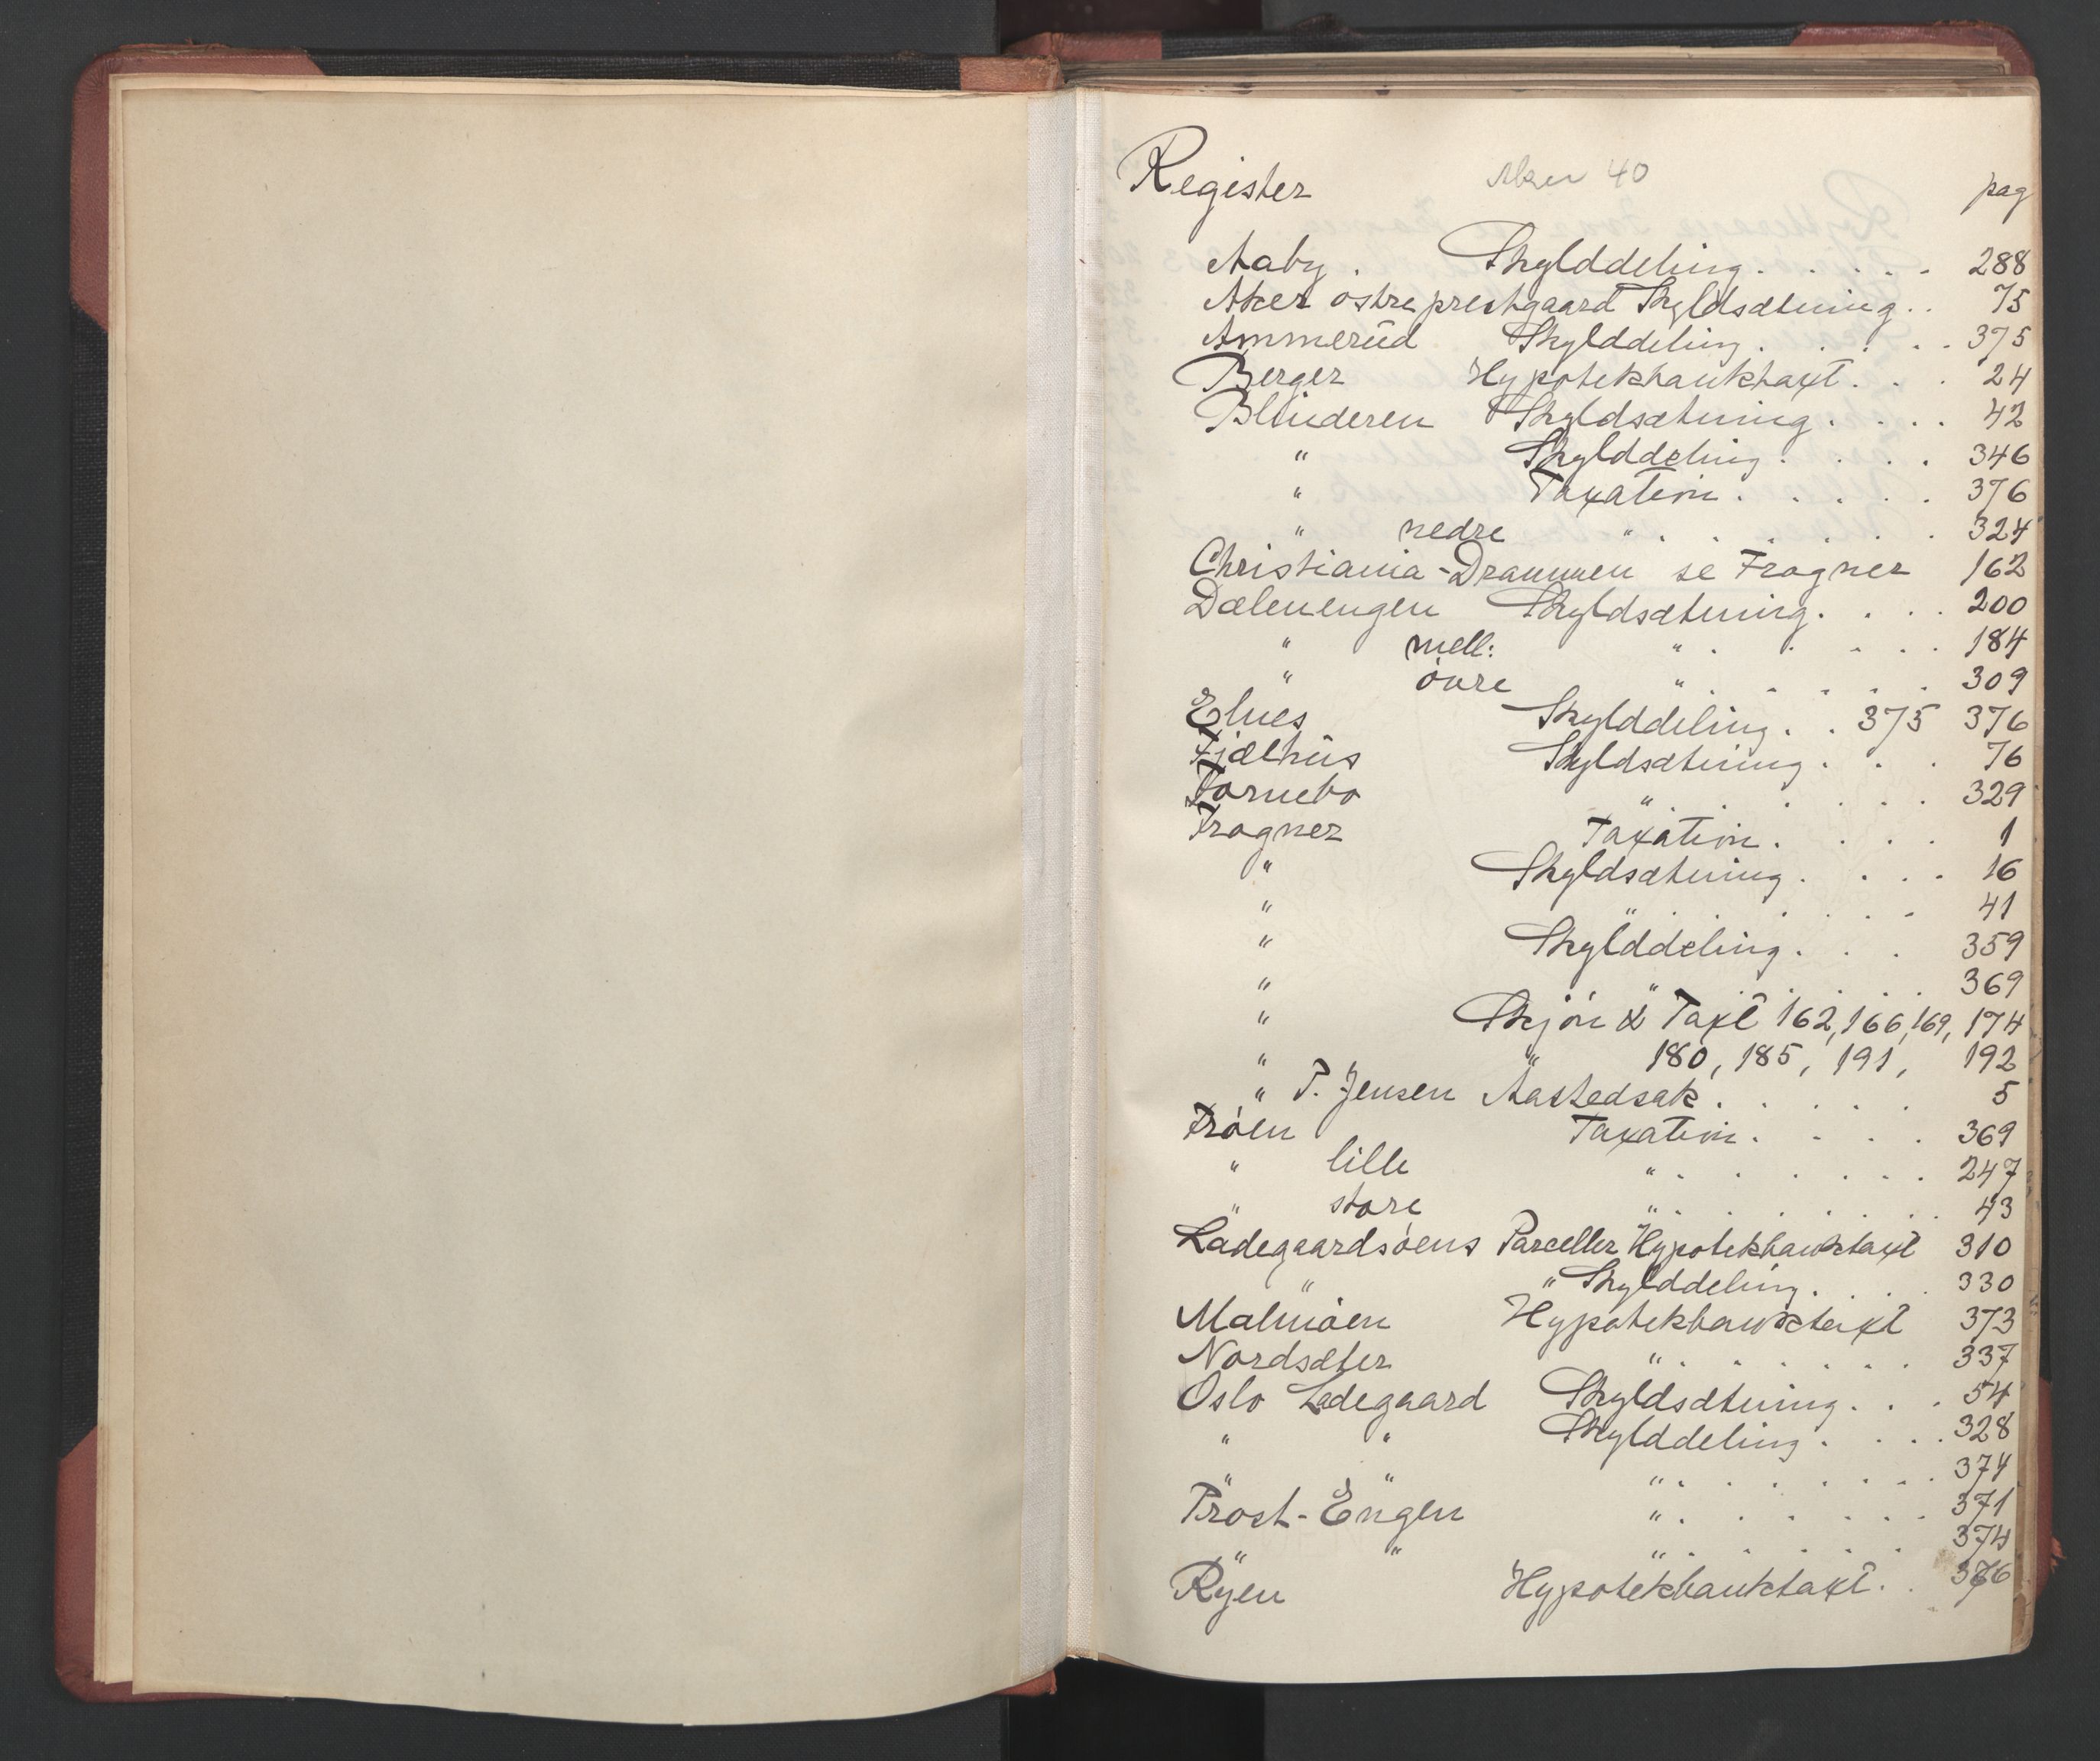 Register Aker 40 pag
Aaby . Skylddeling . . . . . 288
Aker østre prestgaard Skyldsætning . . 75
Ammerud Skylddeling . . . . . 375
Berger Hypotekbanktaxt . . . 24
Blinderen Skyldsætning . . . . 42
" Skylddeling . . . . 346
" Taxation . . . . . 376
" nedre " . . . . . . 324
Christiania-Drammen se Frogner 162
Dælenengen Skyldsætning . . . . 200
" mell: " . . . . . 184
" øvre " . . . . . 309
Elnes Skylddeling . . 375 376
Fjælhus Skyldsætning . . . 76
Fornebo " . . . . . . 329
Frogner Taxation . . . . 1
" Skyldsætning . . . . 16
" " . . . . . 41
" Skylddeling . . . 359
" " . . . . 369
" Skjøn & Taxt 162, 166, 169, 174
" " 180, 185, 191, 192
" P. Jensen Aastedsak . . . . . 5
Frøen Taxation . . . . 369
" lille " . . . . . . 247
" store " . . . . . . 43
Ladegaardsøens Parceller Hypotekbanktaxt 310
" " Skylddeling . . . . 330
Malmøen Hypotekbanktaxt 373
Nordsæter " . . . . . . 337
Oslo Ladegaard Skyldsætning . . . 54
" " Skylddeling . . . . 328
" " " . . . . . . 374
Prost-Engen " . . . . . . 371
" " " . . . . . 374
Ryen Hypotekbanktaxt . . 376